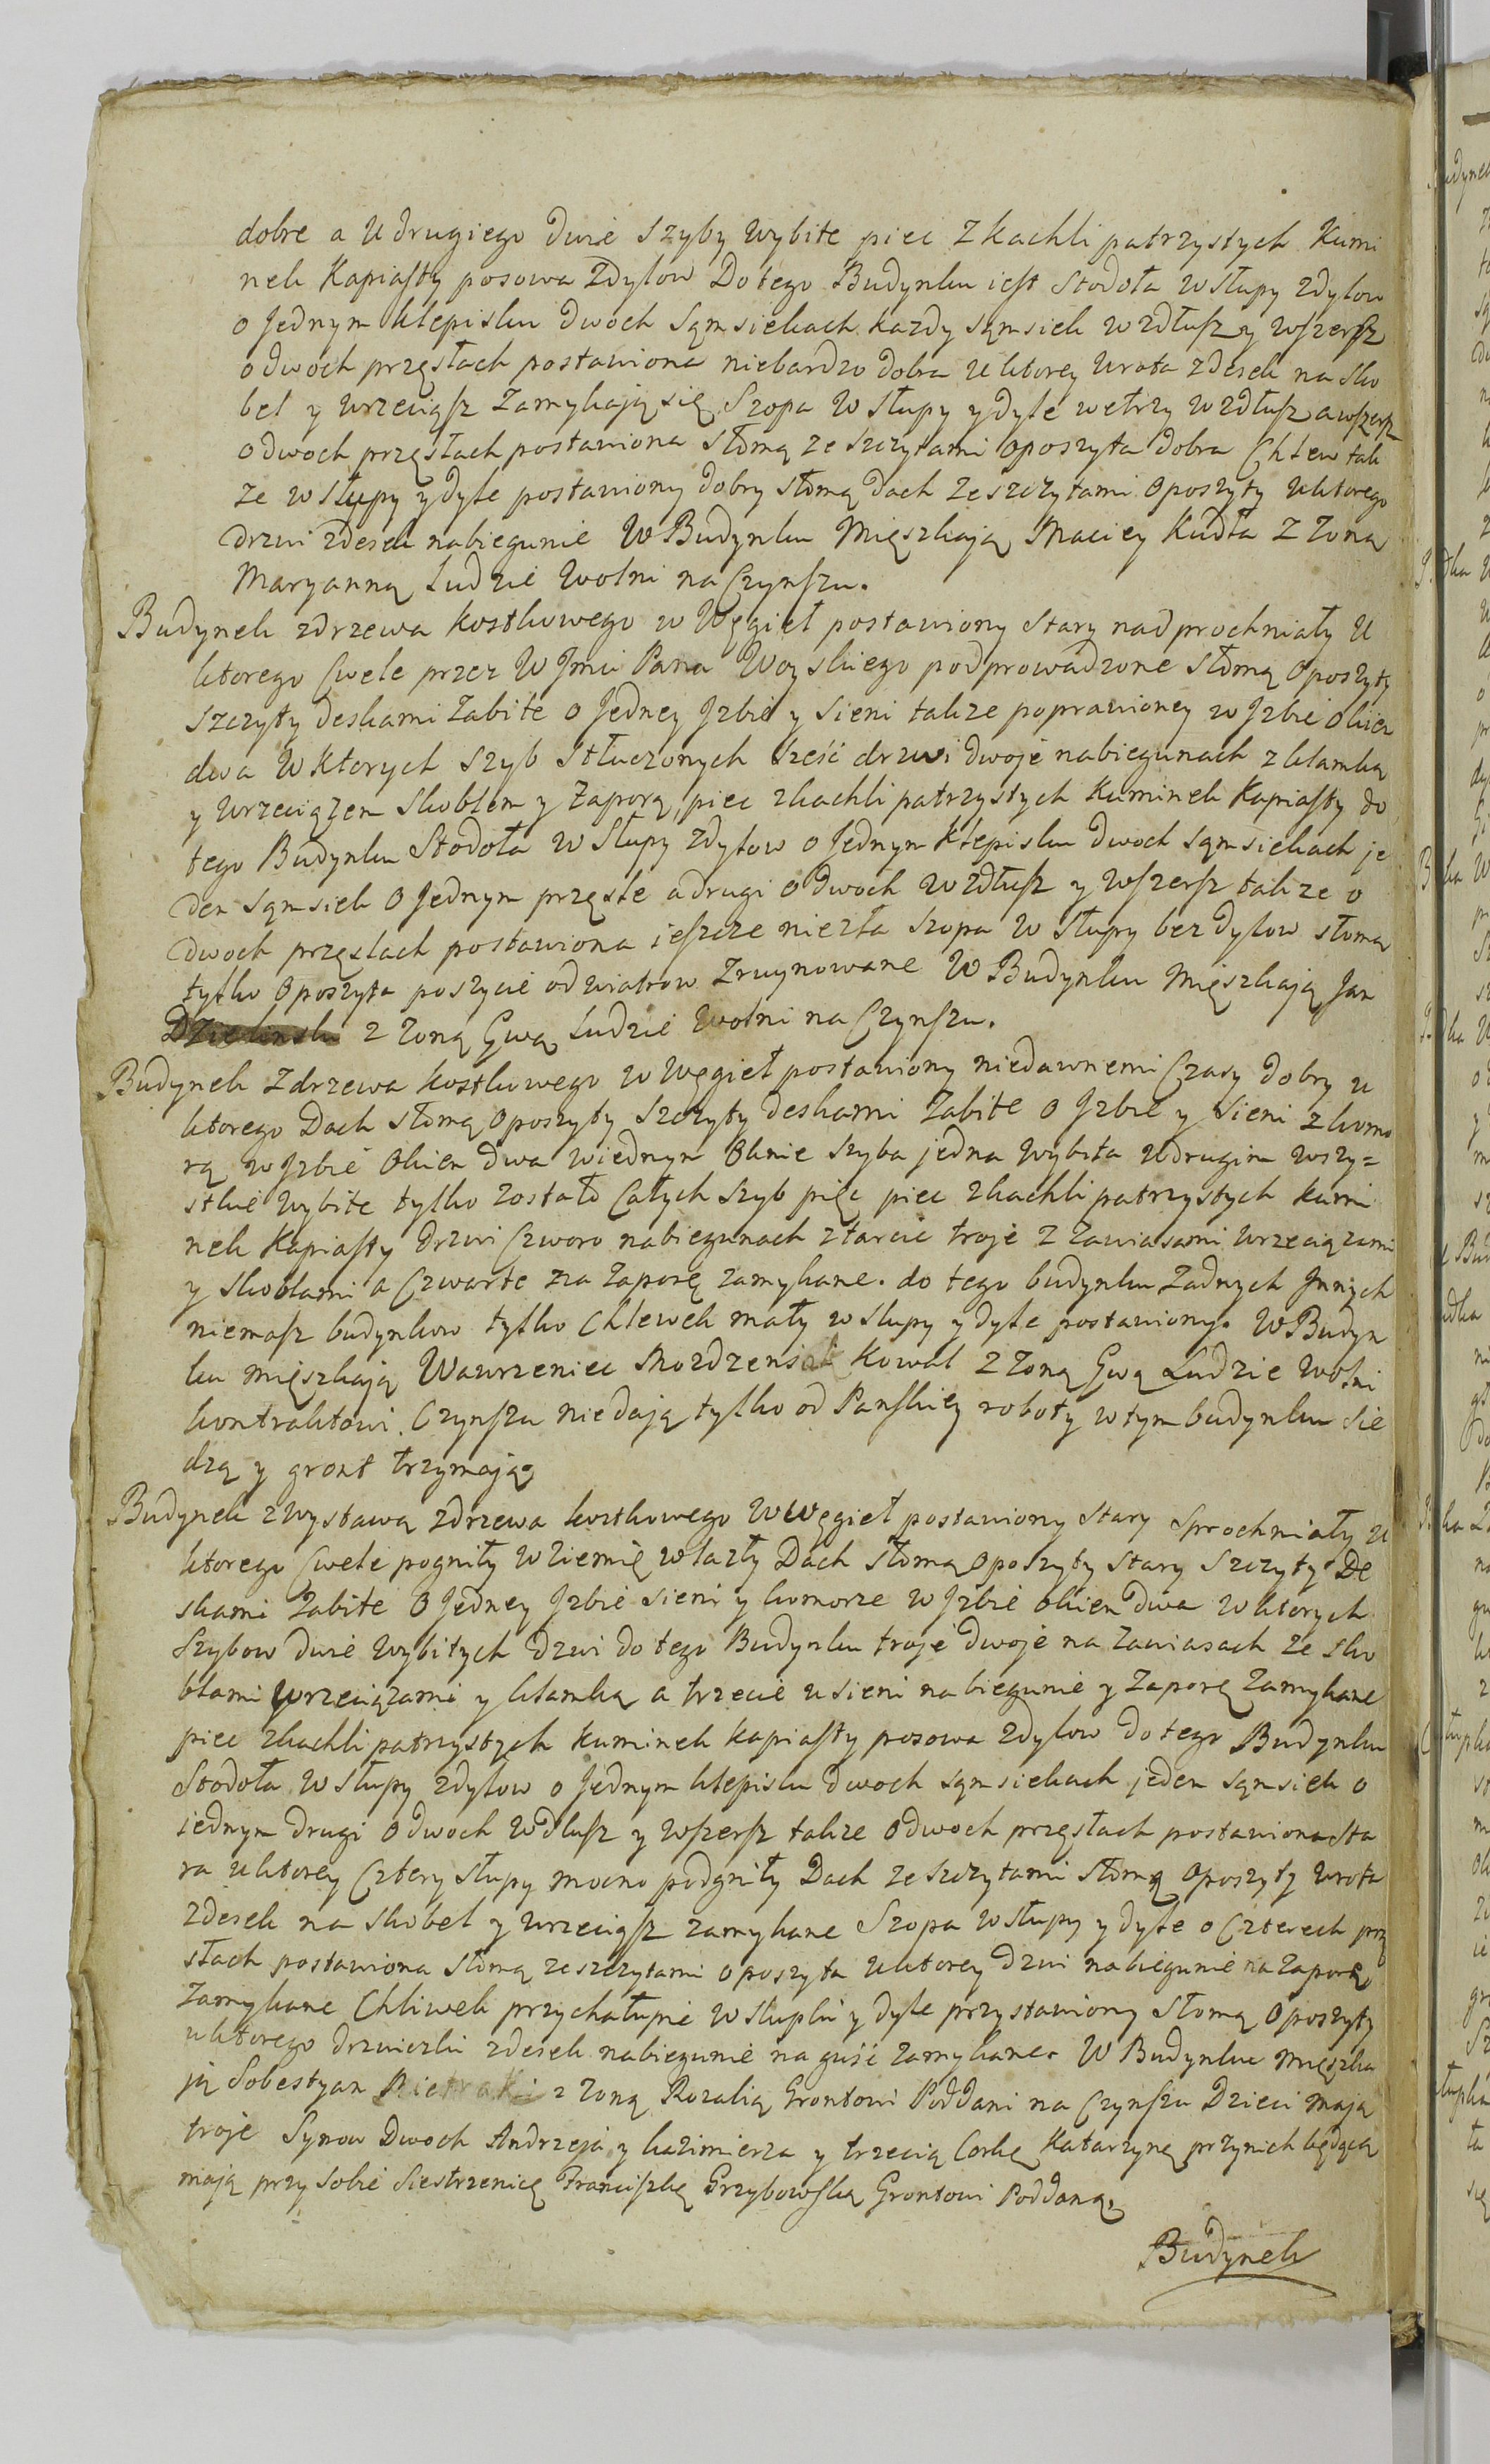 dobre a U drugiego dwie Szyby wybite piec z kachli patrzystych Kumi
nek Kapiasty posowa z Dylow Do tego Budynku iest Stodoła w Słupy z dylow
o Jednym klepisku dwoch Sąmsiekach kazdy sąmsiek w zdłusz y wszersz
o dwoch przęsłach postawiona niebardzo dobra u ktorey wrota z desek na Sko
bel y wrzeciąsz Zamykają się Szopa w Słupy y dyle wetrzy w zdłusz a wszersz
o dwoch przęsłach postawiona Słomą ze Szczytami oposzyta dobra Chlew tak
ze w Słupy y dyle postawiony dobry słomą dach ze szczytami oposzyty u ktorego
drzwi z desek na biegunie W Budynku Mięszkaią Maciey Kudła z Zoną
Maryanną Ludzie Wolni na Czynszu.
Budynek z drzewa kostkowego w Węgieł postawiony Stary nadprochniały U
ktorego Cwele przez W Jmci Pana Woyskiego podprowadzone Słomą oposzyty
Szczyty deskami Zabite o Jedney Jzbie y Sieni takze poprawioney w Jzbie okien
dwa W ktorych Szyb Stłuczonych Sześć drzwi dwoje na biegunach z klamką
y wrzeciązem Skoblem y Zaporą, piec z kachli patrzystych Kuminek Kapiasty do
tego Budynku Stodoła w Słupy z dylow o Jednym Klepisku dwoch sąmsiekach je
den sąmsiek o Jednym przęsle a drugi o dwoch w zdłusz y wszersz takze o
dwoch przęslach postawiona ieszcze niezła Szopa w Słupy bez dylow słomą
tylko oposzyta poszycie od wiatrow Zruynowane W Budynku Mięszkaią Jan
z Zoną Ewą Ludzie Wolni na Czynszu.
Budynek z drzewa kostkowego w Węgieł postawiony niedawnemi Czasy dobry u
ktorego Dach słomą oposzyty Szczyty deskami Zabite o Jzbie y Sieni z komo
rą w Jzbie Okien dwa w iednym Oknie Szyba jedna wybita w drugim wszy=
stkie wybite tylko zostało Całych Szyb pięć piec z kachli patrzystych kumi
nek Kapiasty drzwi Czworo na biegunach z tarcic troje z Zawiasami wrzeciązami
y Skoblami a Czwarte na Zaporę zamykane. do tego budynku Zadnych Jnnych
niemasz budynkow tylko Chlewek mały w słupy y dyle postawiony. W Budyn
ku mięszkaią Wawrzeniec Mozdzenski Kowal z Zoną Ewą Ludzie Wolni
kontraktowi. Czynszu niedaią tylko od Panskiey roboty w tym budynku Sie
dzą y gront trzymaią.
Budynek z Wystawą z drzewa kostkowego w Węgieł postawiony Stary Sprochniały u
ktorego Cwele pogniły w Ziemię w lazły Dach słomą oposzyty stary Szczyty De
skami Zabite o Jedney Jzbie Sieni y komorze w Jzbie okien dwa w ktorych
Szybow dwie wybitych drzwi do tego Budynku troje dwoje na Zawiasach ze sko
blami wrzeciązami y klamką a trzecie u sieni na biegunie y Zaporę Zamykane
piec z kachli patrzystych kuminek kapiasty posowa z dylow do tego Budynku
Stodoła w Słupy z dylow o Jednym klepisku dwoch sąmsiekach jeden sąmsiek o
iednym drugi o dwoch wdlusz y wszersz takze o dwoch przęsłach postawiona Sta
ra u ktorey Cztery słupy mocno podgniły Dach ze szczytami słomą oposzyty wrota
z desek na Skobel y wrzeciąsz zamykane Szopa w słupy y dyle o Czterech przę
słach postawiona słomą ze szczytami oposzyta u ktorey drzwi na biegunie na Zaporę
Zamykane Chliwek przychałupie w słupki y dyle przystawiony Słomą oposzyty
u ktorego drzwiczki z desek na biegunie na guść zamykane. W Budynku mięszka
ją Sobestyan Pietrak z Zoną Rozalią Grontowi Poddani na Czynszu Dzieci mają
troje Synow Dwoch Andrzeja y kazimierza y trzecią Corkę Katarzynę przynich będącą
mają przy sobie Siestrzenicę Franciszkę Grzybowską Grontowi Poddaną.
Budynek